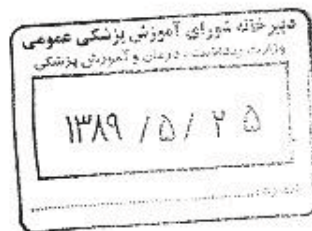 دبیرخانه شورای آموزش پزشکی عمومی
وزارت بهداشت، درمان و آموزش پزشکی
۱۳۸۹ / ۵ / ۲ ۵